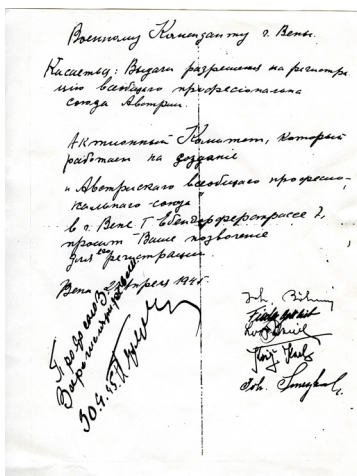 Военному Коменданту г. Вены.
Касается: Выдачи разрешения на регистра
цию всеобщего професіональна
союза Австрии.
Актионный Комитет, который
работает на создание
и Австрискаго всеобщаго професио-
нальнаго союза
в г. Вене
просит Ваше позволение
для его регистрации.
Вена, 27 апреля 1945
Профсоюз
Зарегистрировать
30.4.45.
Joh. Böhm